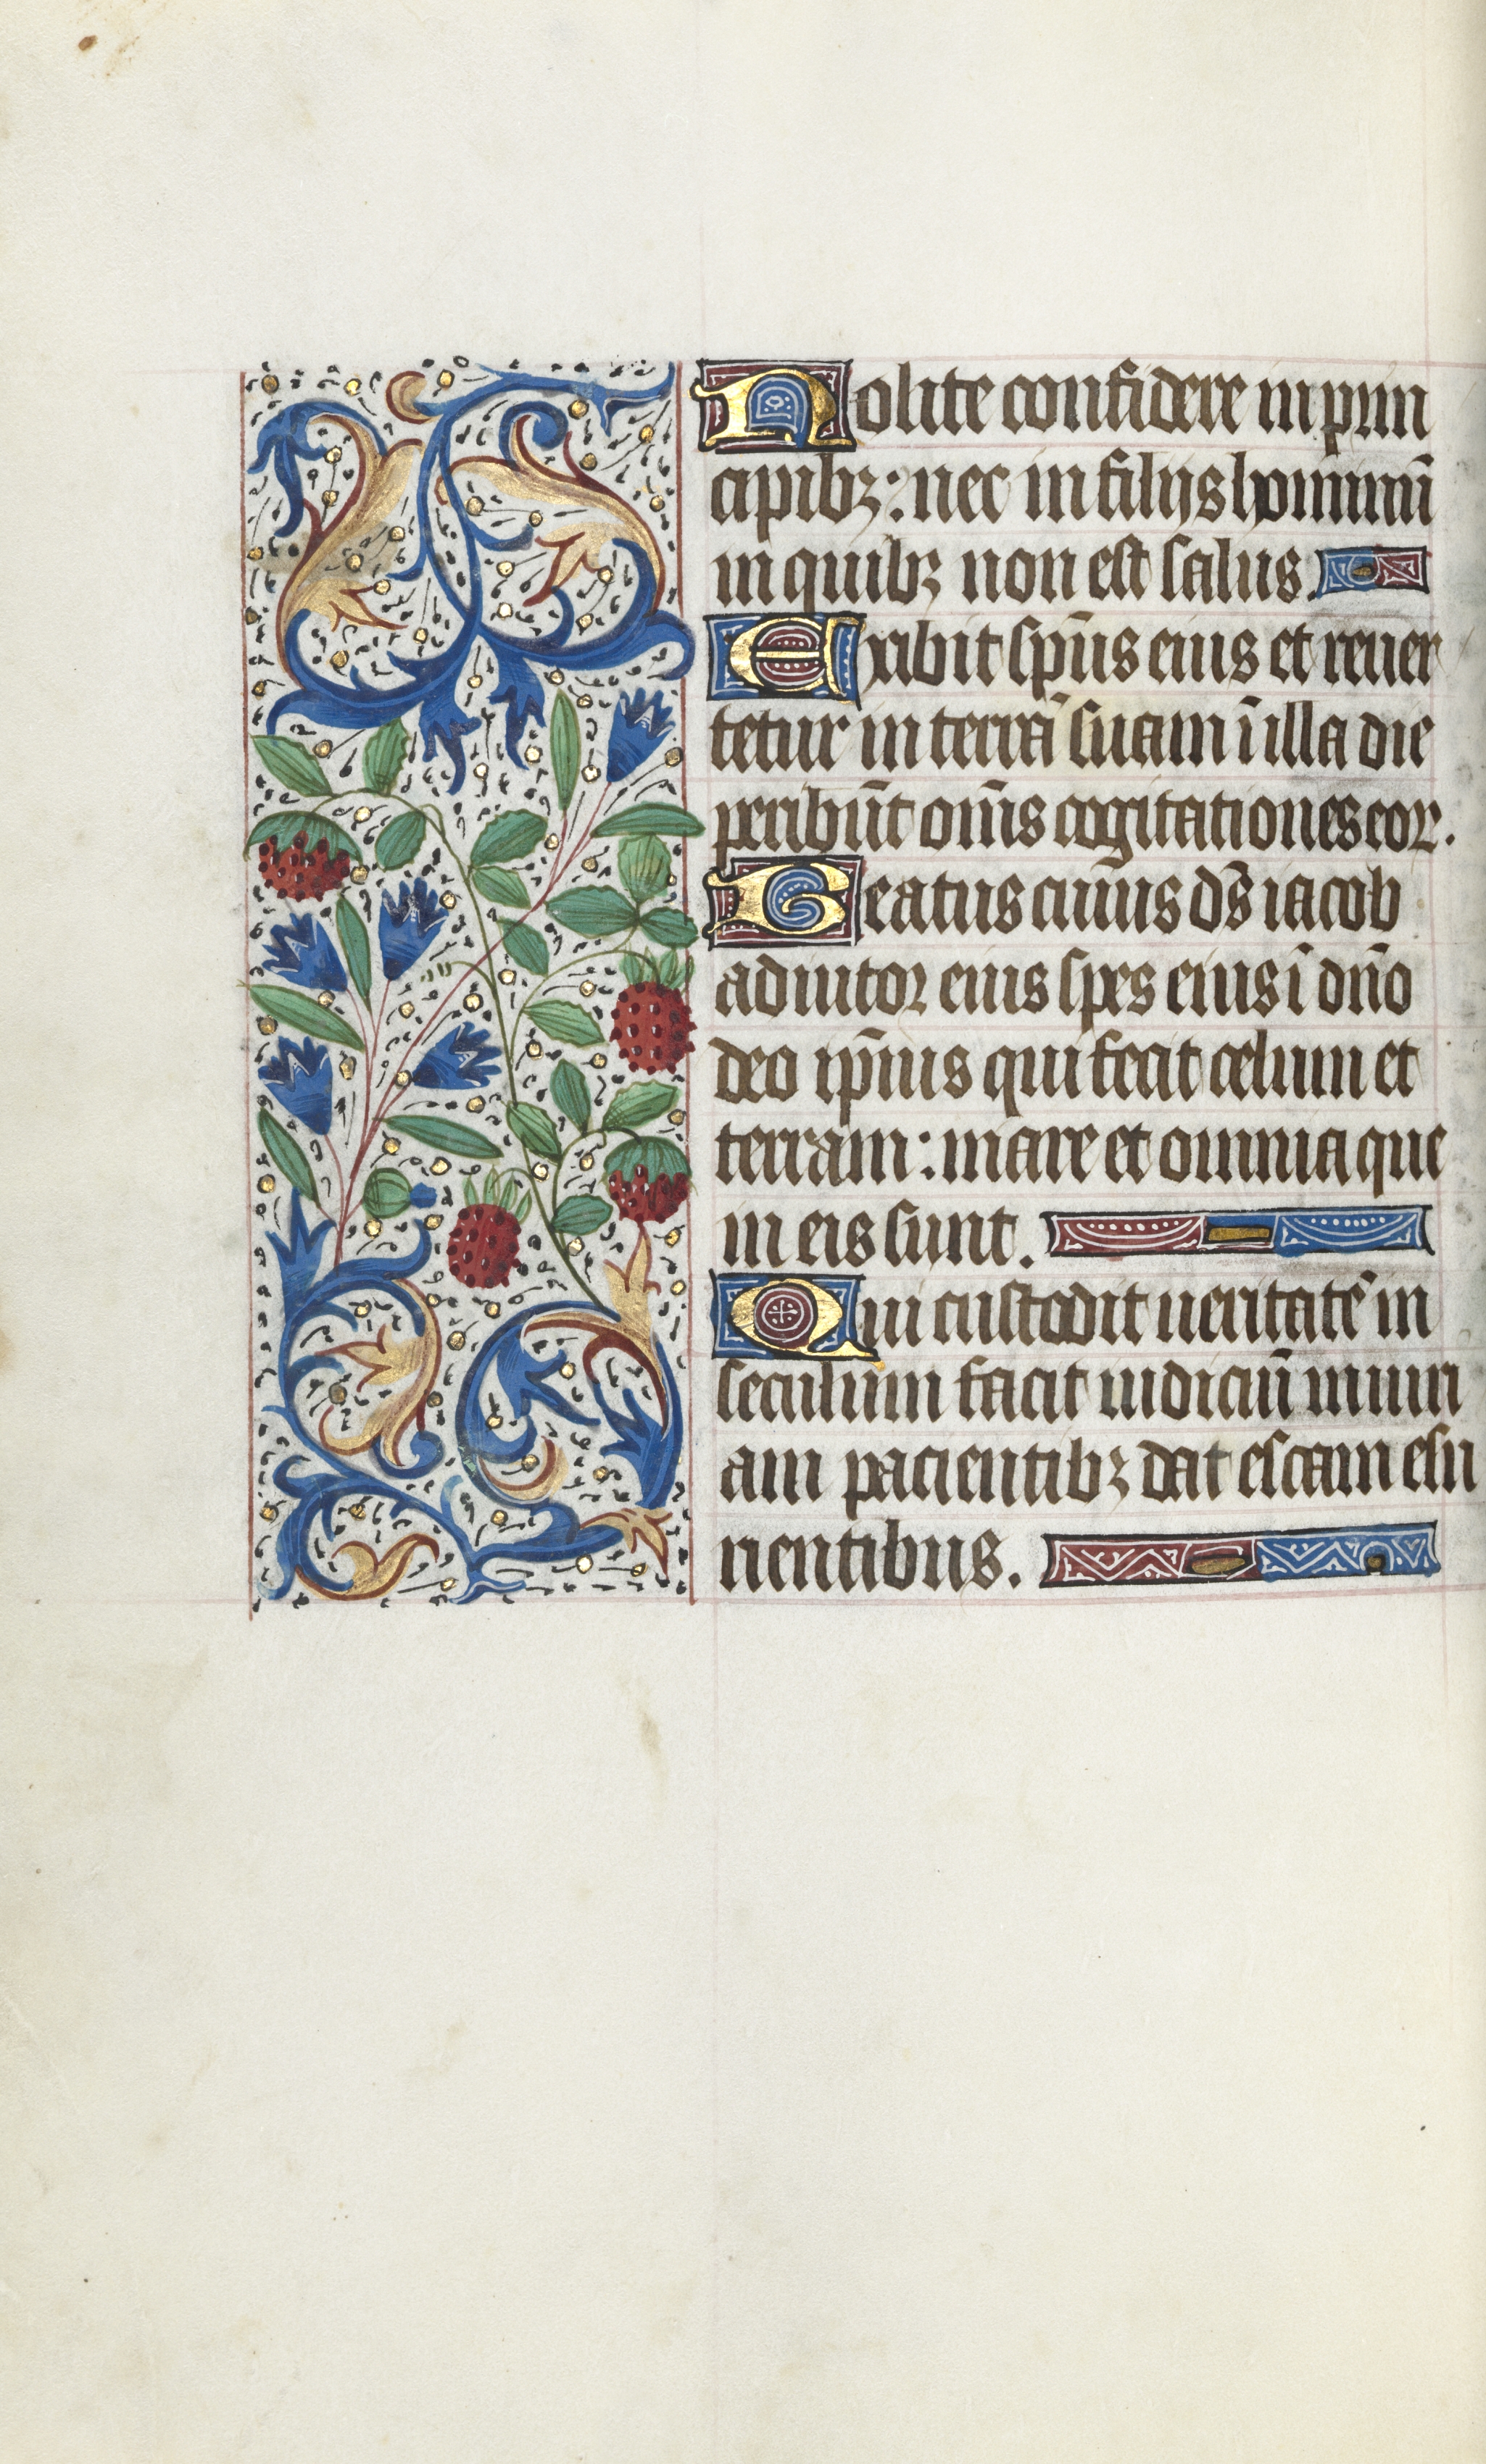 Nolite confidere in prin
cipibꝫ: nec in filijs hominū
in quibꝫ non est salus.
Exibit sp̄us eius et reuer
tetur in terrā suam ī illa die
peribūt om̄s cogitationes eoꝝ.
Beatus cuiius ds̄ iacob
adiutor eius spes eius ī dn̄o
deo ip̄ius qui fecit celum et
terram: mare et omnia que
in eis sunt.
Qui custodit ueritatē in
seculum facit iudiciū iniuri
am pacientibꝫ dat escam esu
rientibus.